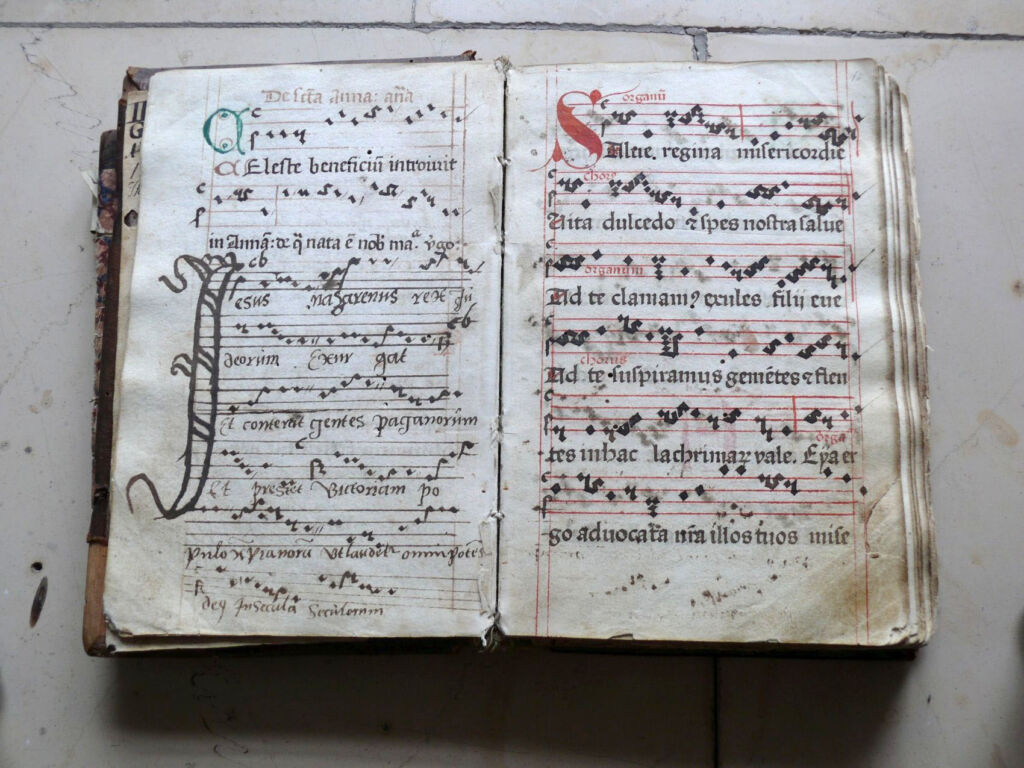 De scta Anna: ana
CEleste beneficiū introiuit
in Annā: de q̄ nata ē nob ma. v̄go:
Iesus nazarenus rex Iu
deorum Exur gat
Et conterat gentes paganorūm
Et prestet Victoriam po
pulo
deq Insecula Seculorum
organū
SAlue. regina misericordie
chorꝯ
Uita dulcedo ⁊ spes nostra salue
organum
Ad te clamamꝯ exules filij eue
chorus
Ad te suspiramus gemētes ⁊ flen
tes in hac lachrimaꝝ vale. Eya er
orga
go aduocata nr̄a illos tuos mise